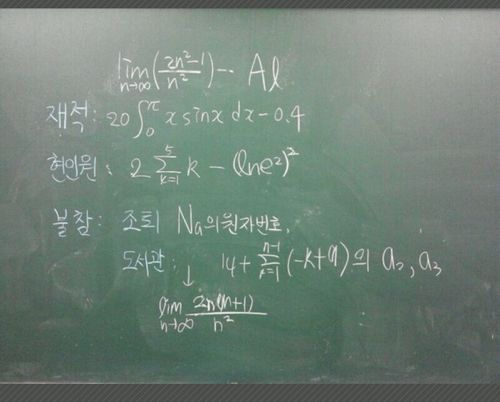 lim n→∞ (2n²-1 / n²) -- Al
재적 : 20 ∫₀^π x sinx dx - 0.4
현의원 : 2 ∑_{k=1}^{5} k - (lne²)²
불찰 : 조퇴 Na의 원자번호,
도서관 : 14 + ∑_{k=1}^{n-1} (-k+9) 의 a₂, a₃
↓
lim n→∞ 2n(n+1) / n²